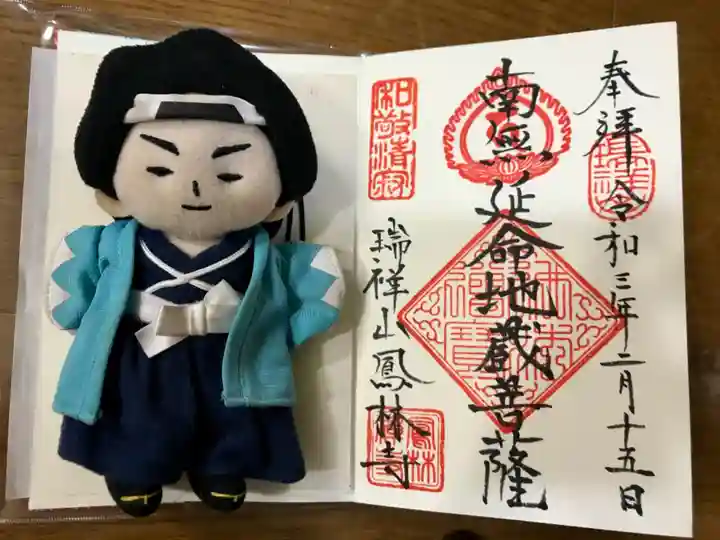 奉拝 令和三年二月十五日
南無延命地蔵菩薩
和敬清寂
瑞祥山鳳林寺